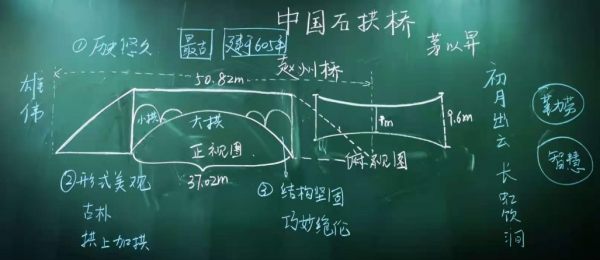 中国石拱桥
茅以昇
①历史悠久 最古 建于605年
50.82m
赵州桥
雄伟
小拱
大拱
正视图
37.02m
9m
9.6m
俯视图
初月出云 长虹饮涧
勤劳
智慧
②形式美观
古朴
拱上加拱
③结构坚固
巧妙绝伦